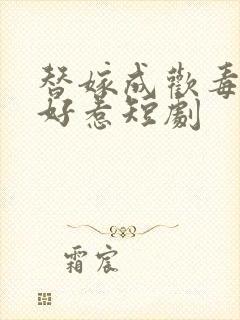 替嫁成歡毒
好惹短劇
霜宸